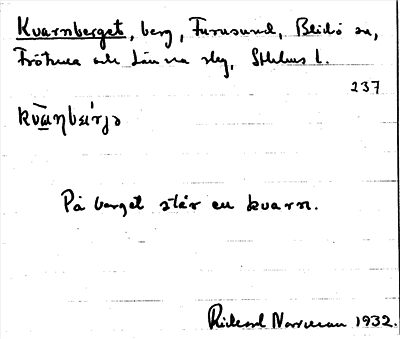 Kvarnberget, berg, Furusund, Blidö sn,
Frötuna och Länna slg, Sthlms l.
237
På berget står en kvarn.
Rickard Norrman 1932.